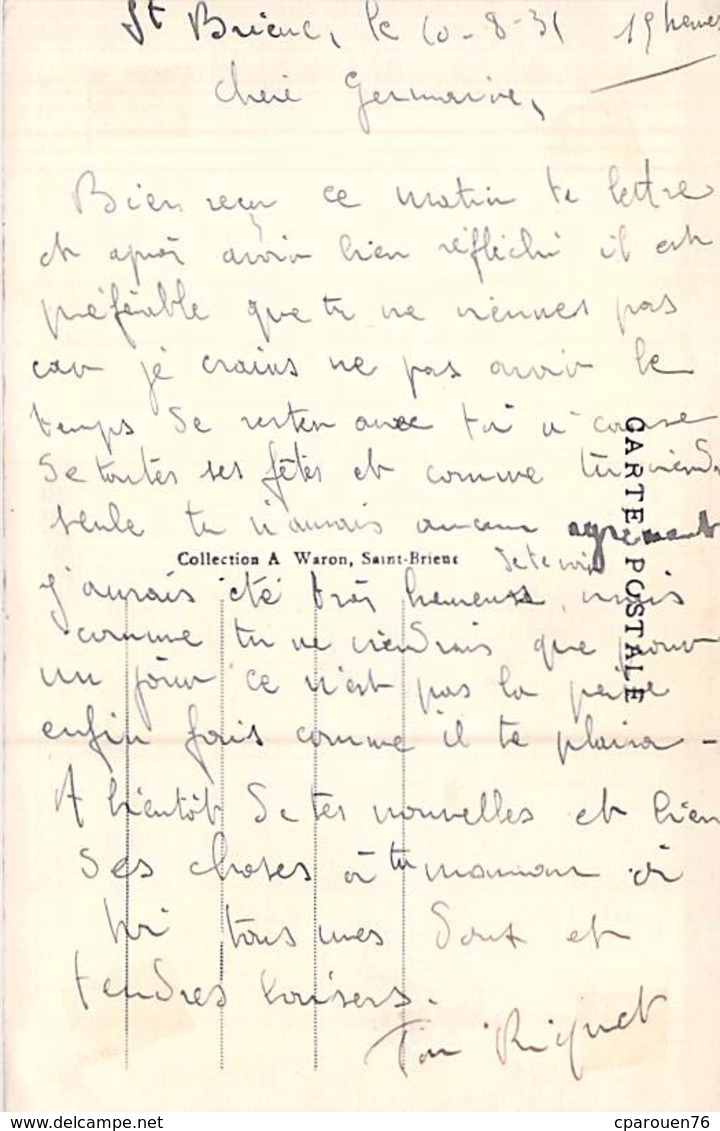 St Brieuc, le 10-8-31 19 heures
Chère Germaine,
Bien reçu ce matin ta lettre
et après avoir bien réfléchi il est
préférable que tu ne viennes pas
car je crains ne pas avoir le
temps de rester avec toi à cause
de toutes ses fêtes et comme tu viendr
seule tu n'aurais aucun agrément
Collection A Waron, Saint-Brieuc
de te voir
j'aurais été très heureux, mais
comme tu ne viendrais que pour
un jour ce n'est pas la peine
enfin fais comme il te plaira -
A bientôt de tes nouvelles et bien
des choses à ta maman à
toi tous mes doux et
tendres baisers.
Ton Riquet
CARTE POSTALE
delcampe.net
cparouen76